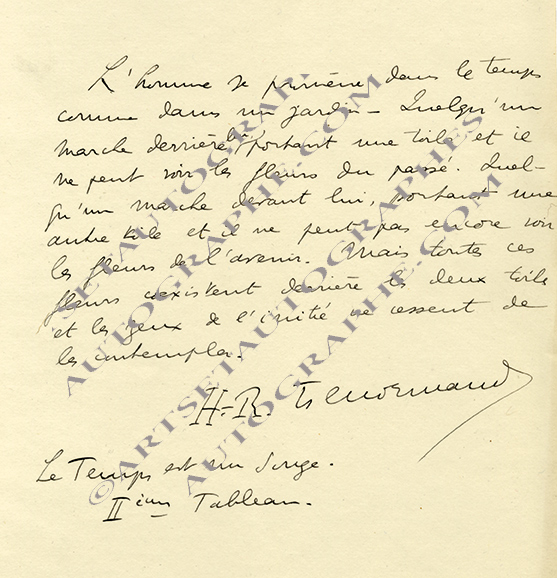 L'homme se promène dans le temps
comme dans un jardin – Quelqu'un
marche derrière lui portant une toile et il
ne peut voir les fleurs du passé. Quel-
qu'un marche devant lui, portant une
autre toile et il ne peut pas encore voir
les fleurs de l'avenir. Mais toutes ces
fleurs coexistent derrière les deux toiles
et les yeux de l'initié ne cessent de
les contempler.
H.-R. Lenormand
Le Temps est un Songe.
IIième Tableau.
©ARTSETAUTOGRAPHES
AUTOGRAPHE.COM